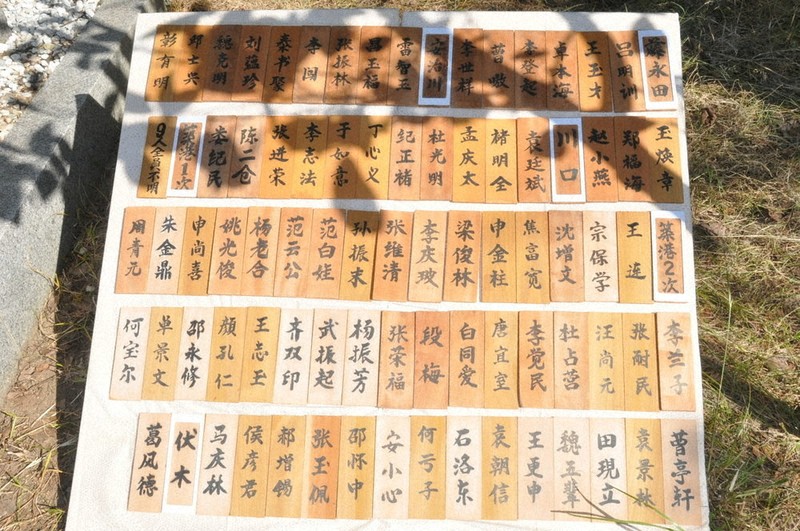 藤永田
呂明訓
王玉才
卓本海
李登起
李世祥
安治川
雷智五
吕玉福
张振林
泰书聚
刘蕴珍
魏克明
邱士兴
彭育明
王焕章
郑福海
赵小燕
川口
袁廷斌
褚明全
孟庆太
杜光明
纪正褚
丁心义
于如意
李志法
张进荣
陈二仓
娄纪民
築港1次
9人全員不明
築港2次
王连
宗保学
沈增文
焦富宽
申金柱
梁俊林
李庆玟
张维清
孙振末
范白娃
范云公
杨老合
姚光俊
申尚善
朱金鼎
周青元
张耐民
汪尚元
杜占营
李党民
唐宜室
白同爱
段梅
张荣福
杨振芳
武振起
齐双印
王志玉
颜孔仁
邵永修
卓景文
何宝尔
曹亭轩
袁景林
田現立
魏五辈
王更申
袁朝信
石洛东
何亏子
安小心
邵怀中
张玉佩
郝增锡
侯彦君
马庆林
伏木
葛风德